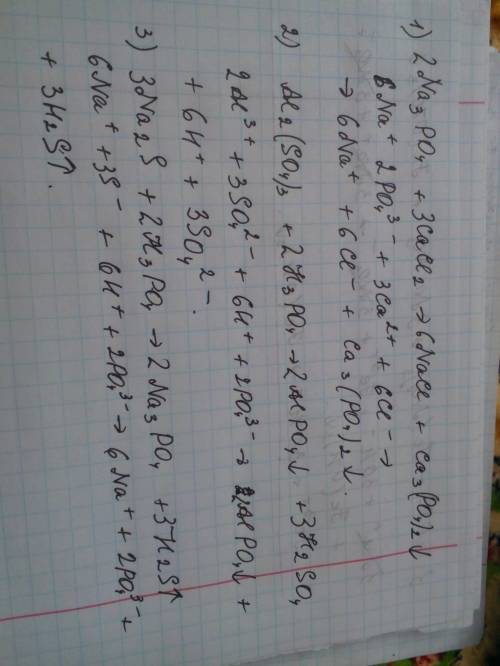 1) 2Na₃PO₄ + 3CaCl₂ → 6NaCl + Ca₃(PO₄)₂↓
6Na⁺ 2PO₄³⁻ + 3Ca²⁺ + 6Cl⁻ →
→ 6Na⁺ + 6Cl⁻ + Ca₃(PO₄)₂↓.
2) Al₂(SO₄)₃ + 2H₃PO₄ → 2AlPO₄↓ + 3H₂SO₄
2Al³⁺ + 3SO₄²⁻ + 6H⁺ + 2PO₄³⁻ → 2AlPO₄↓ +
+ 6H⁺ + 3SO₄²⁻.
3) 3Na₂S + 2H₃PO₄ → 2Na₃PO₄ + 3H₂S↑
6Na⁺ + 3S⁻ + 6H⁺ + 2PO₄³⁻ → 6Na⁺ + 2PO₄³⁻ +
+ 3H₂S↑.